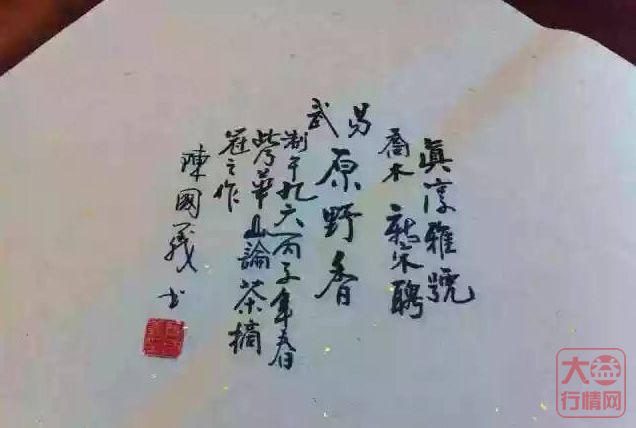 眞淳雅號
喬木 宋聘
易武
原野香
制于九六丙子年春
此乃華山論茶摘
冠之作
陳國義 书
大益
行情网